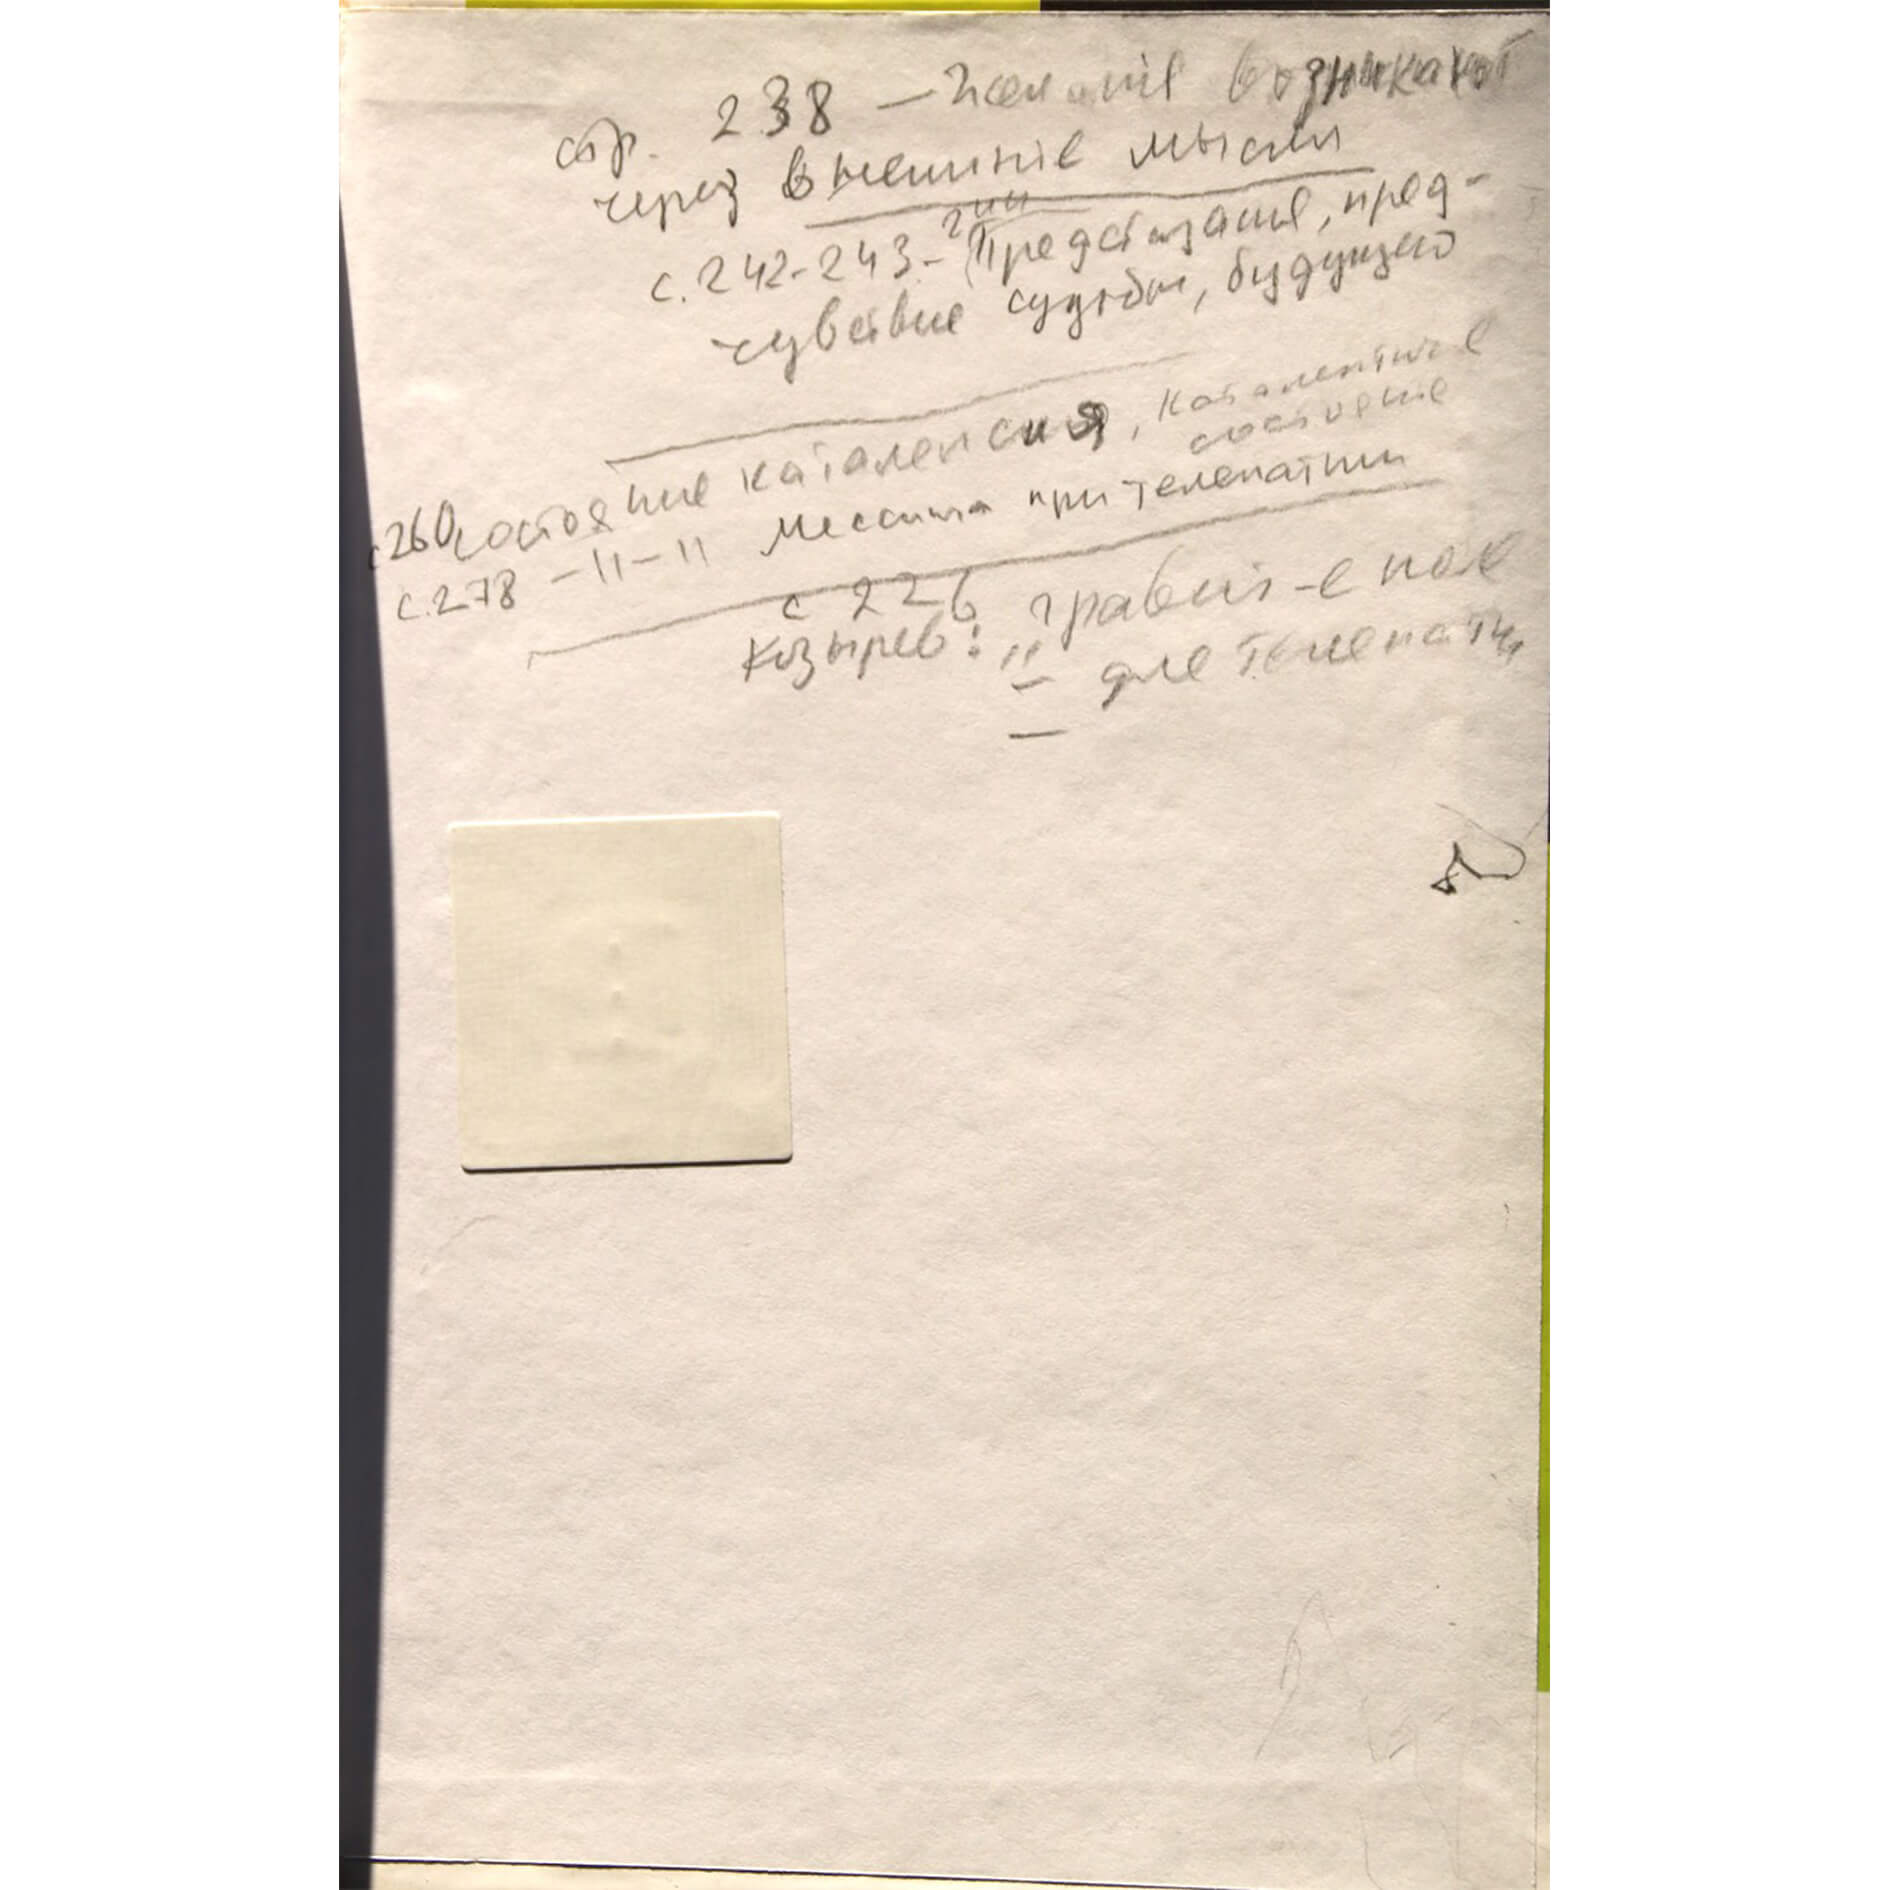 стр. 238 — Желание возникают
через внешние мысли
с. 242-243 - Предсказание, пред-
чувствие судьбы, будущего
с260 состояние каталепсия, каталептич-е
состояние
с. 278 — II — II Мессинга при телепатии
с 226
Козырев: „ гравит-е поле
— для телепатии
—